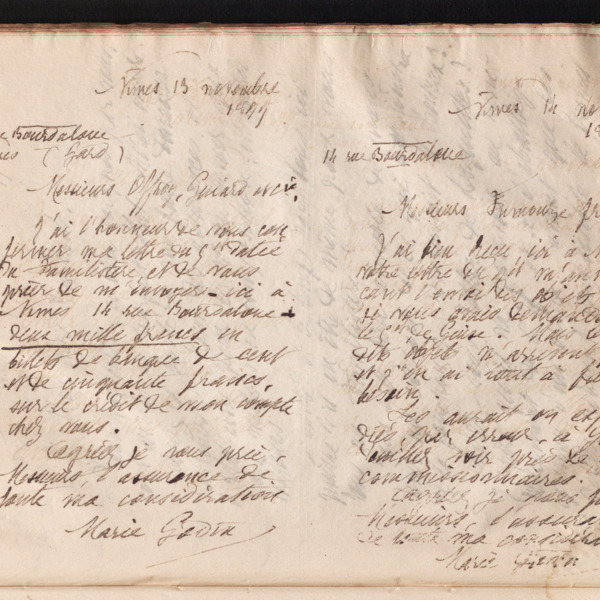 Nimes 13 novembre
1897
Bourdaloue
(Gard)
Messieurs Offroy, Guiard et Cie,
J'ai l'honneur de vous con
firmer ma lettre du 9 datée
du Familistère, et de vous
prier de m'envoyer ici à
Nimes 14 rue Bourdaloue
deux mille francs en
billets de banque de cent
et de cinquante francs,
sur le crédit de mon compte
chez vous.
Agréez je vous prie,
Messieurs, l'assurance de
toute ma considération
Marie Godin
Nimes 14 no
18
14 rue Bourdaloue
Messieurs Fumouze fr
J'ai bien reçu, ici à N
votre lettre du
çant l'envoi des objets
je vous avais demandé
le de Guise. Mais
dits objets n'arrivent
et j'en ai tout à fa
besoin.
Les aurait on ex
diés, par erreur, à G
veuillez voir près de
commissionnaires.
Agréez je vous p
Messieurs, l'assura
de toute ma considéra
Marie Godin